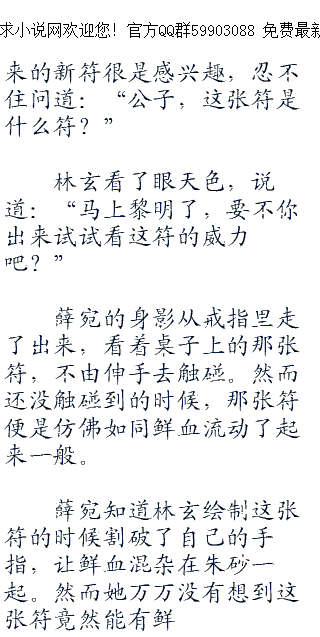 求小说网欢迎您！官方QQ群59903088 免费最新
来的新符很是感兴趣，忍不
住问道：“公子，这张符是
什么符？”
林玄看了眼天色，说
道：“马上黎明了，要不你
出来试试看这符的威力
吧？”
薛宛的身影从戒指里走
了出来，看着桌子上的那张
符，不由伸手去触碰。然而
还没触碰到的时候，那张符
便是仿佛如同鲜血流动了起
来一般。
薛宛知道林玄绘制这张
符的时候割破了自己的手
指，让鲜血混杂在朱砂一
起。然而她万万没有想到这
张符竟然能有鲜